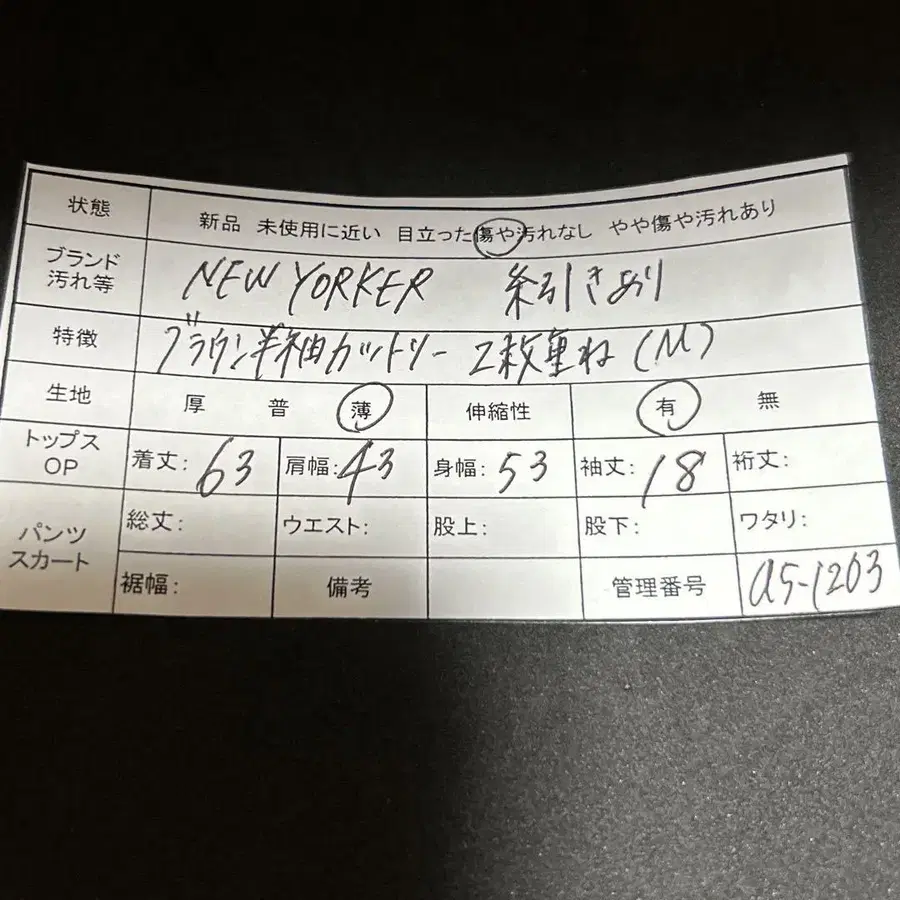 状態 新品 未使用に近い 目立った傷や汚れなし やや傷や汚れあり
ブランド
汚れ等 NEW YORKER 糸引きあり
特徴 ブラウン半袖カットソー 2枚重ね(M)
生地 厚 普 薄 伸縮性 有 無
トップス
OP 着丈:63 肩幅:43 身幅:53 袖丈:18 裄丈:
パンツ
スカート 総丈: ウエスト: 股上: 股下: ワタリ:
裾幅: 備考 管理番号 a5-1203